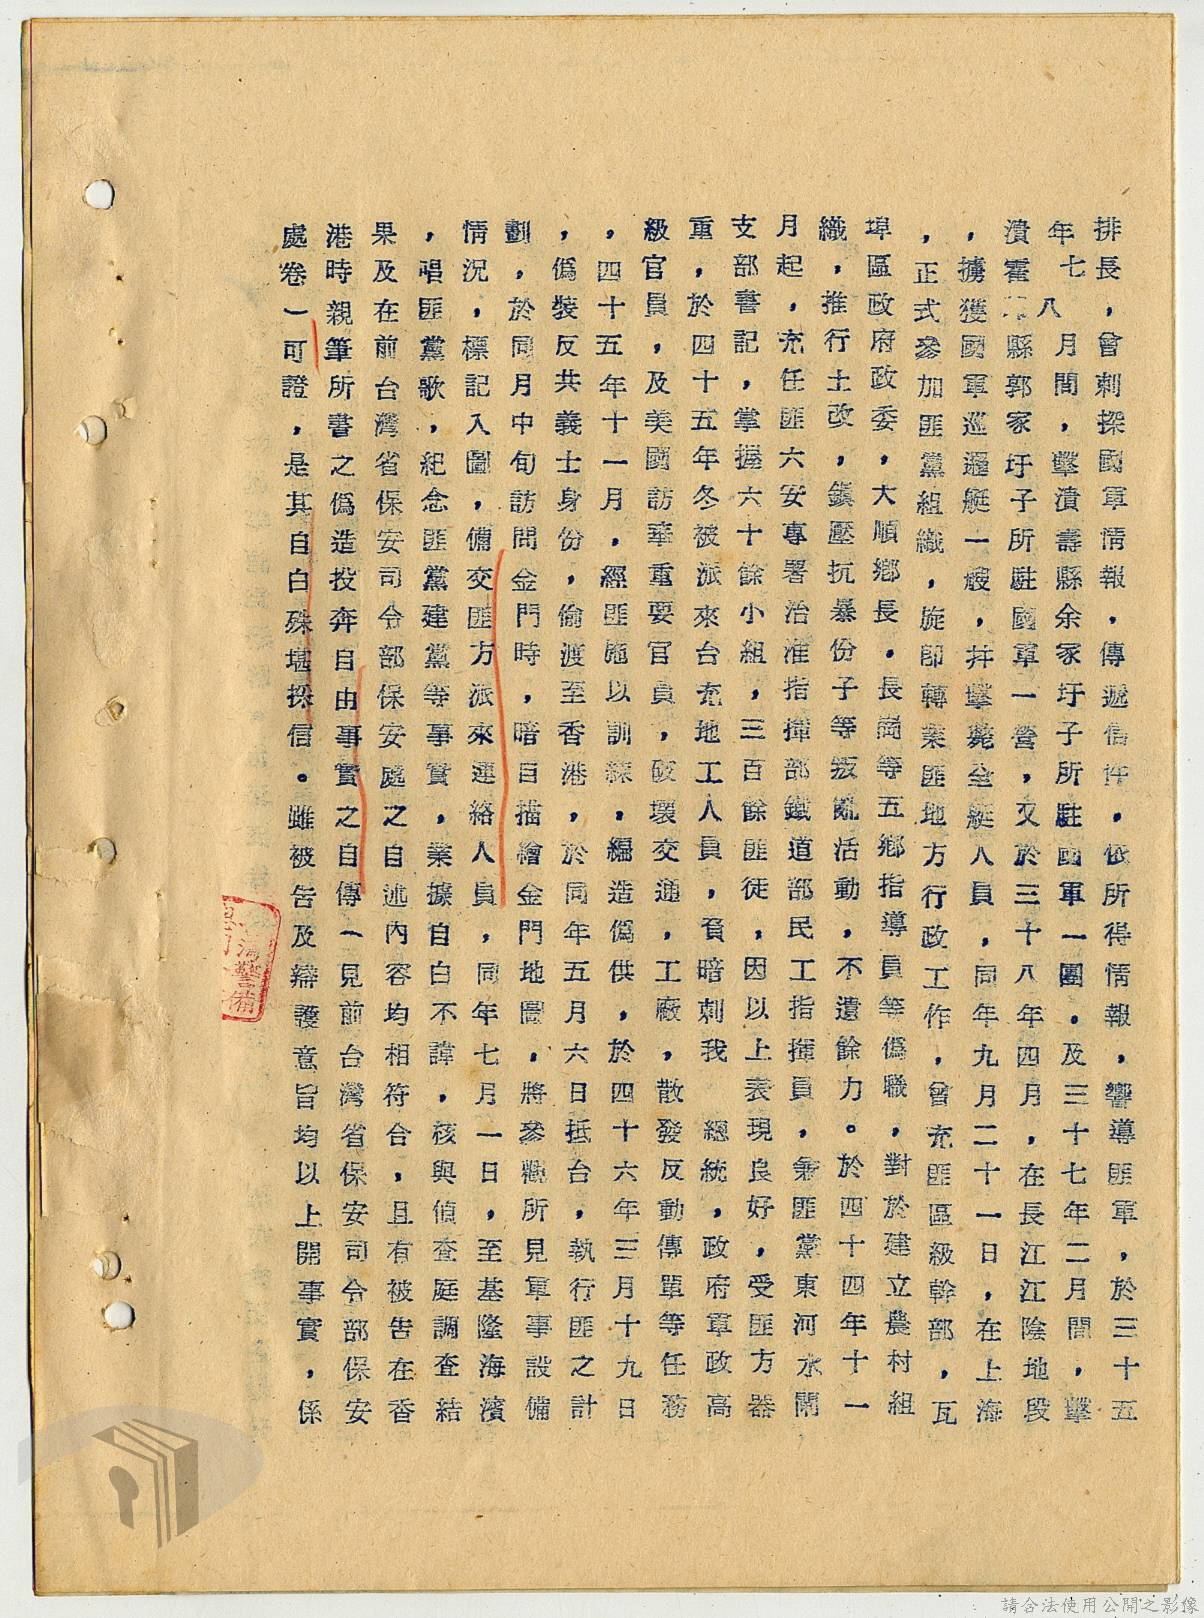 排長，曾刺探國軍情報，傳遞信件，依所得情報，響導匪軍，於三十五
年七八月間，擊潰壽縣余家圩子所駐國軍一團。及三十七年二月間，擊
潰霍縣郭家圩子所駐國軍一營，又於三十八年四月，在長江江陰地段
，擄獲國軍巡邏艇一艘，幷擊斃全艇人員，同年九月二十一日，在上海
，正式參加匪黨組織，旋即轉業匪地方行政工作，曾充匪區級幹部，瓦
埠區政府政委，大順鄉長。長崗等五鄉指導員等偽職，對於建立農村組
織，推行土改，鎮壓抗暴份子等叛亂活動，不遺餘力。於四十四年十一
月起，充任匪六安專署治淮指揮部鐵道部民工指揮員，兼匪黨東河水閘
支部書記，掌握六十餘小組，三百餘匪徒，因以上表現良好，受匪方器
重，於四十五年冬被派來台充地工人員，負暗刺我　總統，政府軍政高
級官員，及美國訪華重要官員，破壞交通，工廠，散發反動傳單等任務
，四十五年十一月，經匪施以訓練，編造偽供，於四十六年三月十九日
，偽裝反共義士身份，偷渡至香港，於同年五月六日抵台，執行匪之計
劃，於同月中旬訪問金門時，暗自描繪金門地圖，將參觀所見軍事設備
情況，標記入圖，備交匪方派來連絡人員，同年七月一日，至基隆海濱
，唱匪黨歌，紀念匪黨建黨等事實，業據自白不諱，核與偵查庭調查結
果及在前台灣省保安司令部保安處之自述內容均相符合，且有被告在香
港時親筆所書之偽造投奔自由事實之自傳（見前台灣省保安司令部保安
處卷）可證，是其自白殊堪採信。雖被告及辯護意旨均以上開事實，係
請合法使用公開之影像